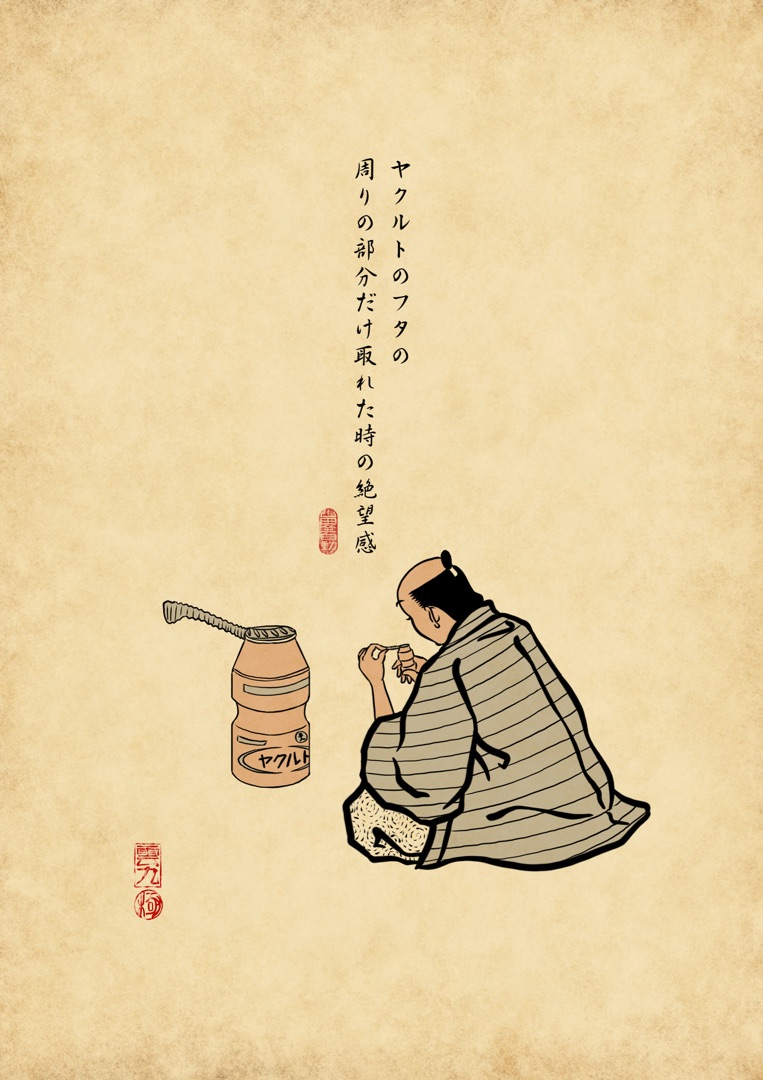 ヤクルトのフタの
周りの部分だけ取れた時の絶望感
ヤクルト